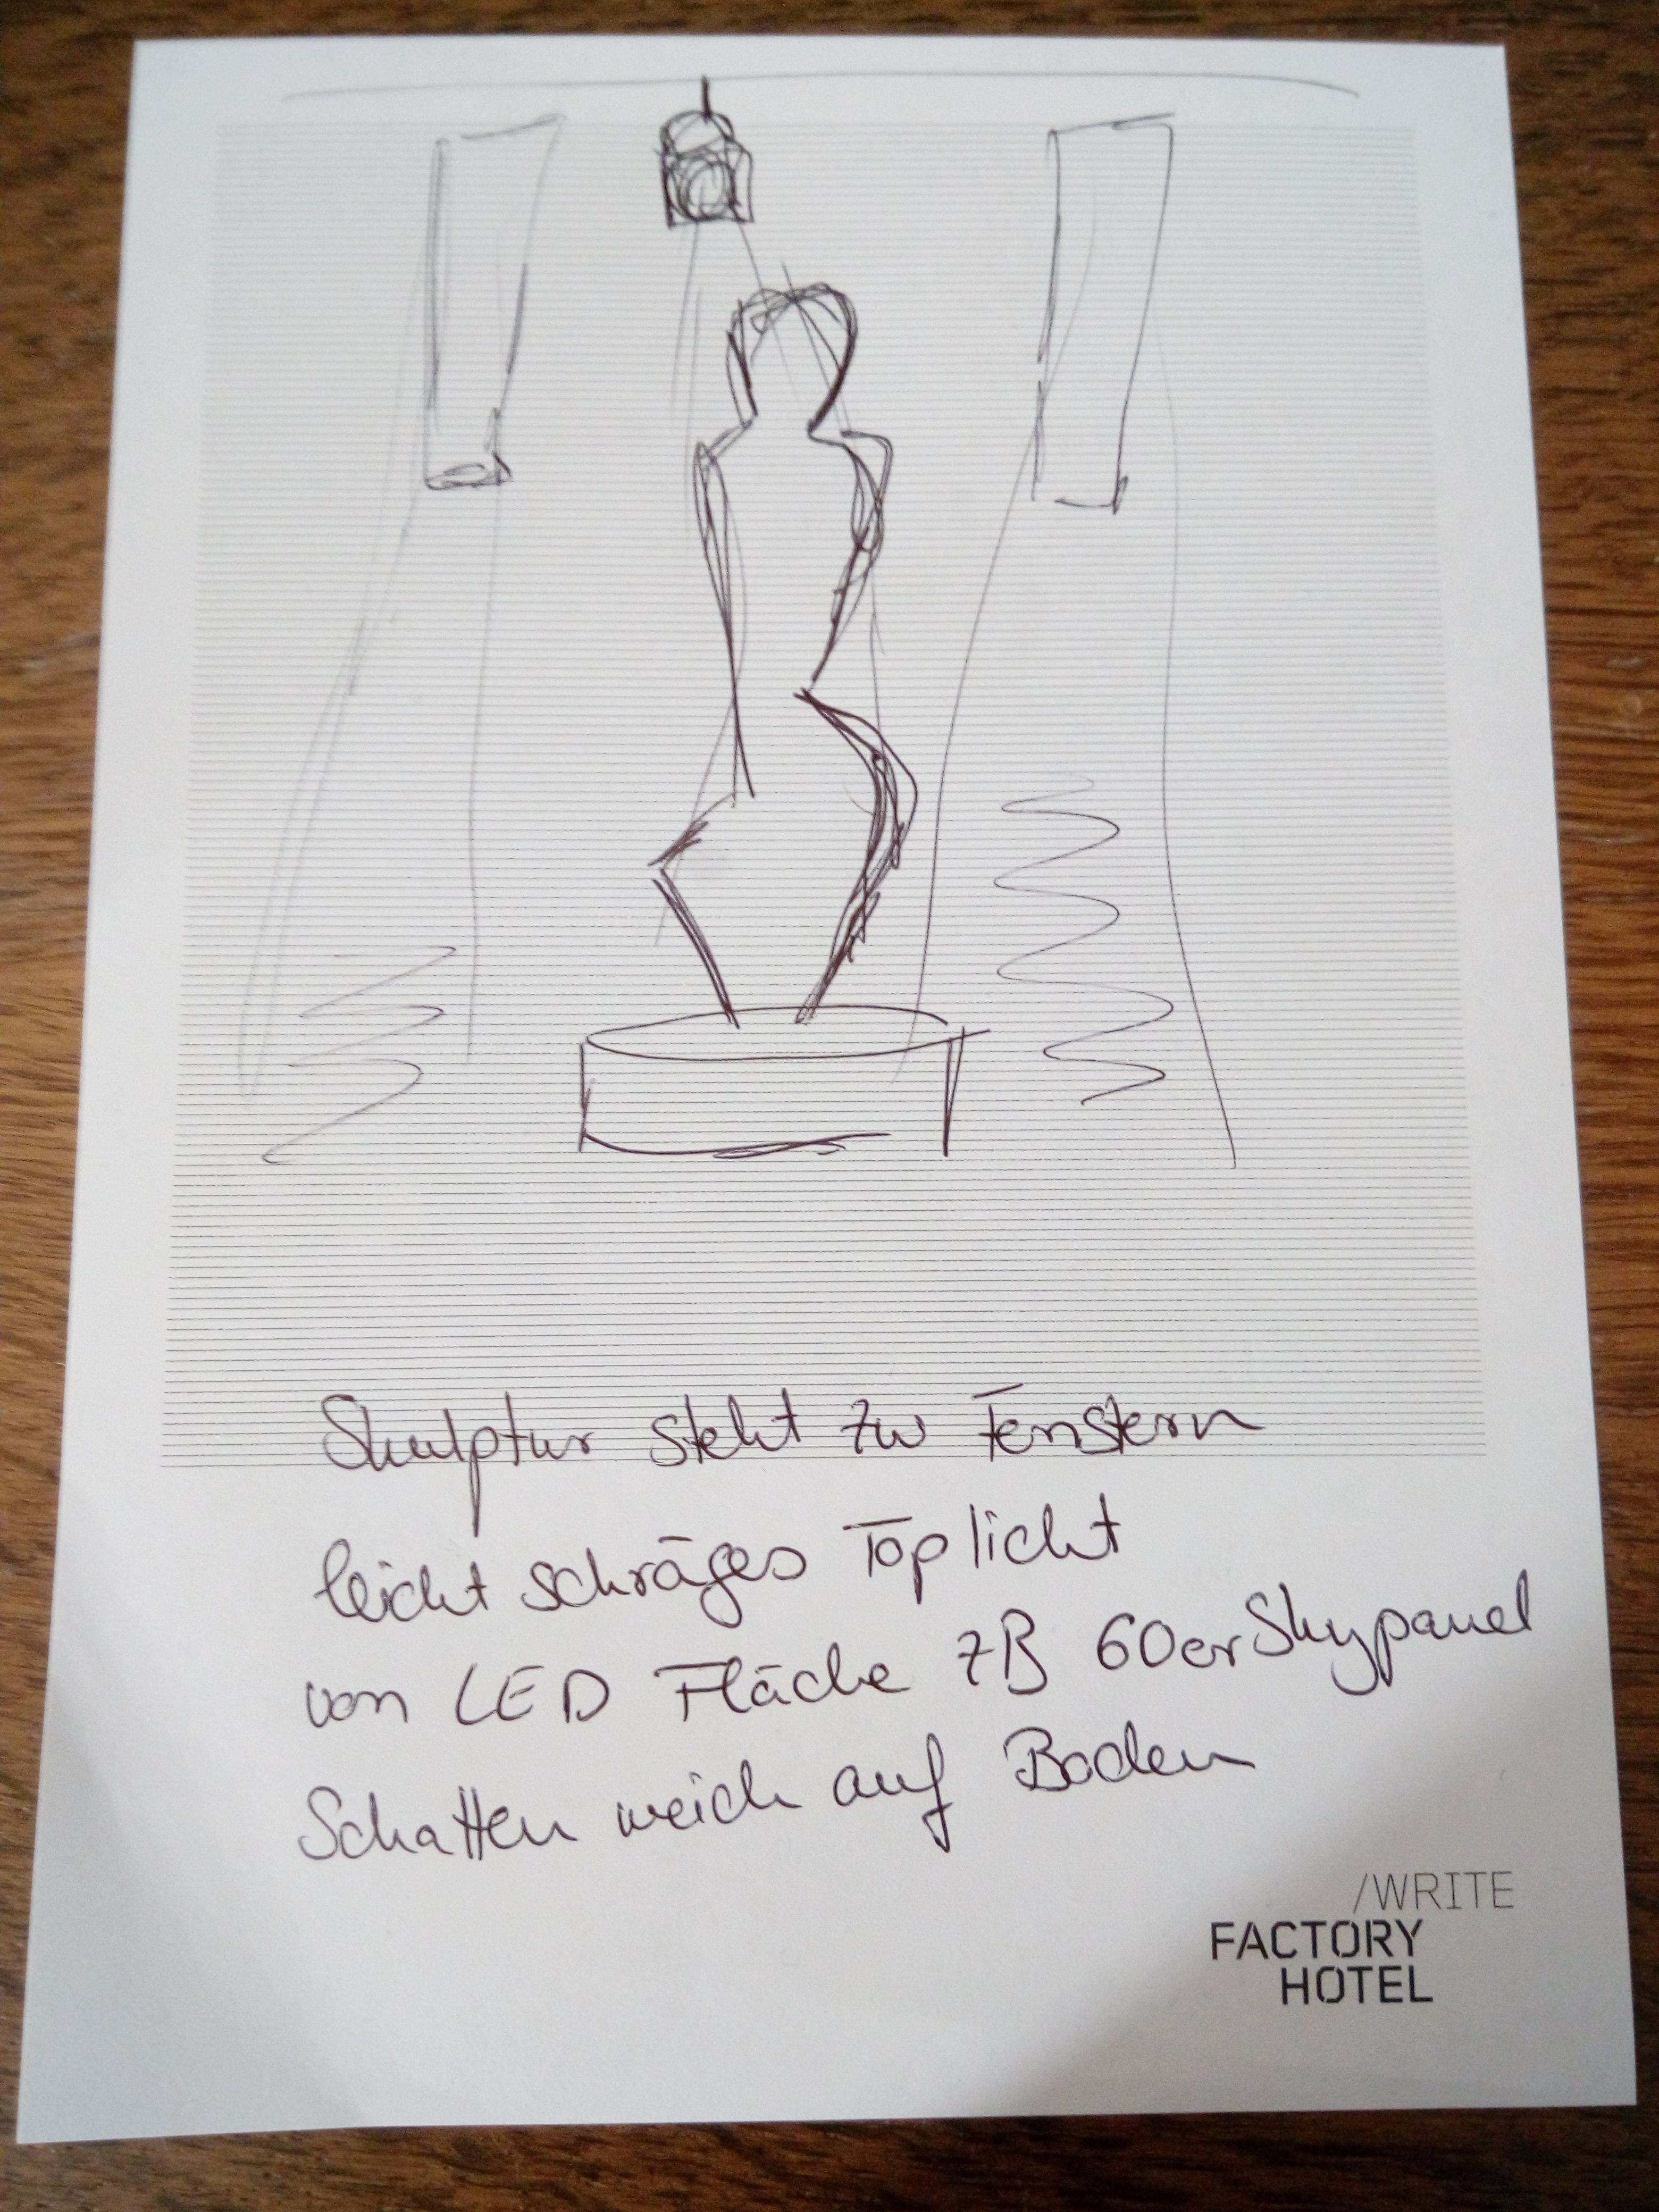 Skulptur steht zw Fenstern
leicht schräges Toplicht
von LED Fläche zB 60er Skypanel
Schatten weich auf Boden
/WRITE
FACTORY
HOTEL